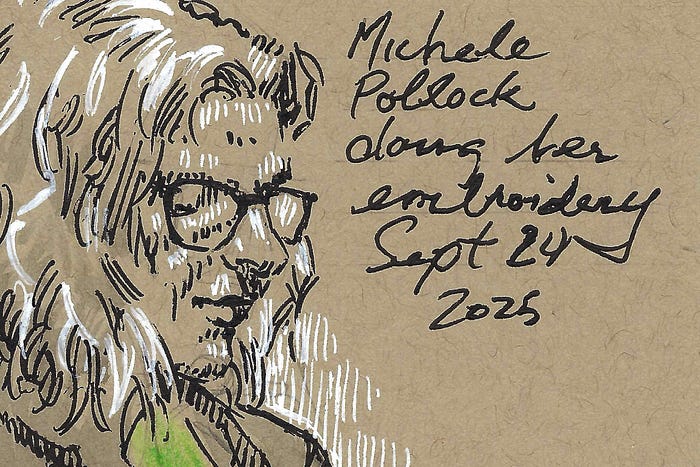 Michele
Pollock
doing her
embroidery
Sept 24
2025